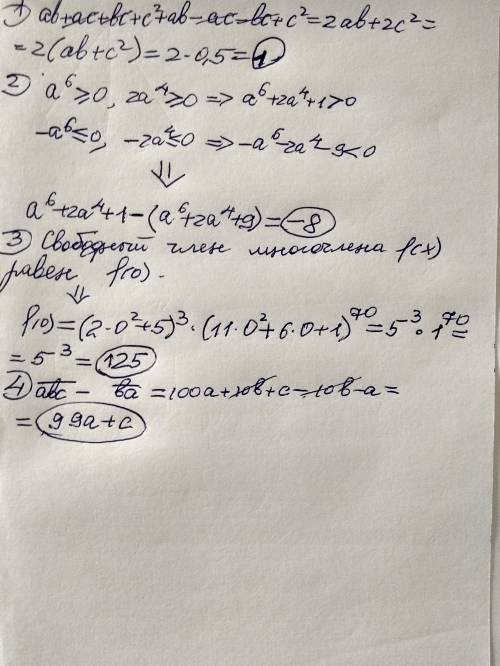 1) ab+ac+bc+c²+ab-ac-bc+c²=2ab+2c²=
=2(ab+c²)=2·0,5=1
2) a⁶≥0, 2a⁴≥0 => a⁶+2a⁴+1>0
-a⁶≤0, -2a⁴≤0 => -a⁶-2a⁴-9<0
⇓
a⁶+2a⁴+1-(a⁶+2a⁴+9)=-8
3) Свободный член многочлена f(x)
равен f(0).
⇓
f(0)=(2·0²+5)³·(11·0²+6·0+1)⁷⁰=5³·1⁷⁰=
=5³=125
4) abc - ba =100a+10b+c-10b-a=
=99a+c